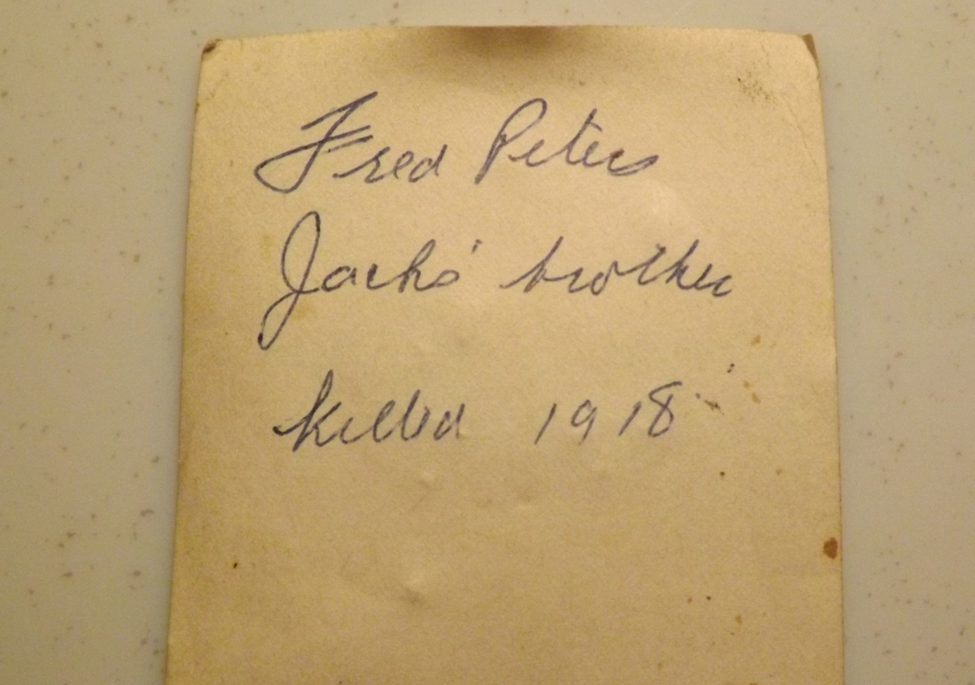 Fred Peters
Jack's brother
killed 1918